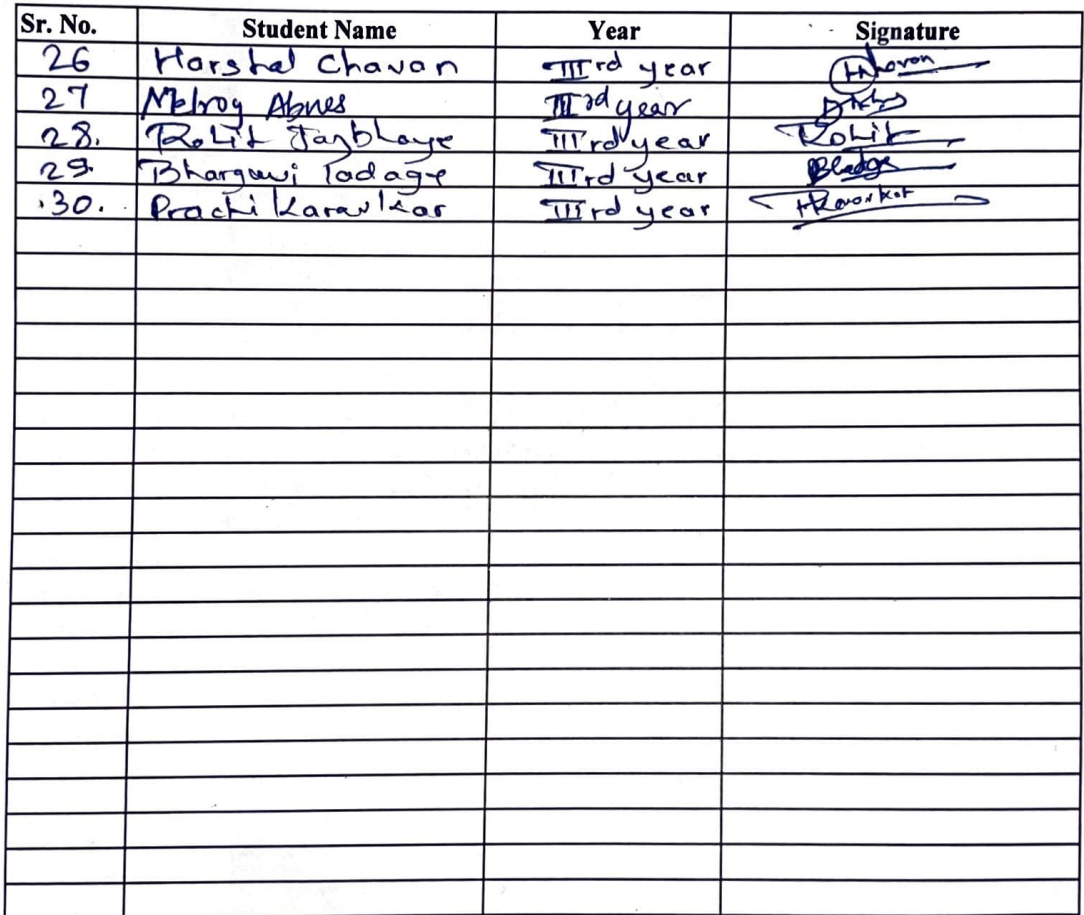 Sr. No. Student Name Year Signature
26 Harshal Chavan IIIrd year
27 Melroy Abnes IIIrd year
28. Rohit Jagbhaye IIIrd year Rohit
29. Bhargavi Tadage IIIrd year
30. Prachi Karavkar IIIrd year